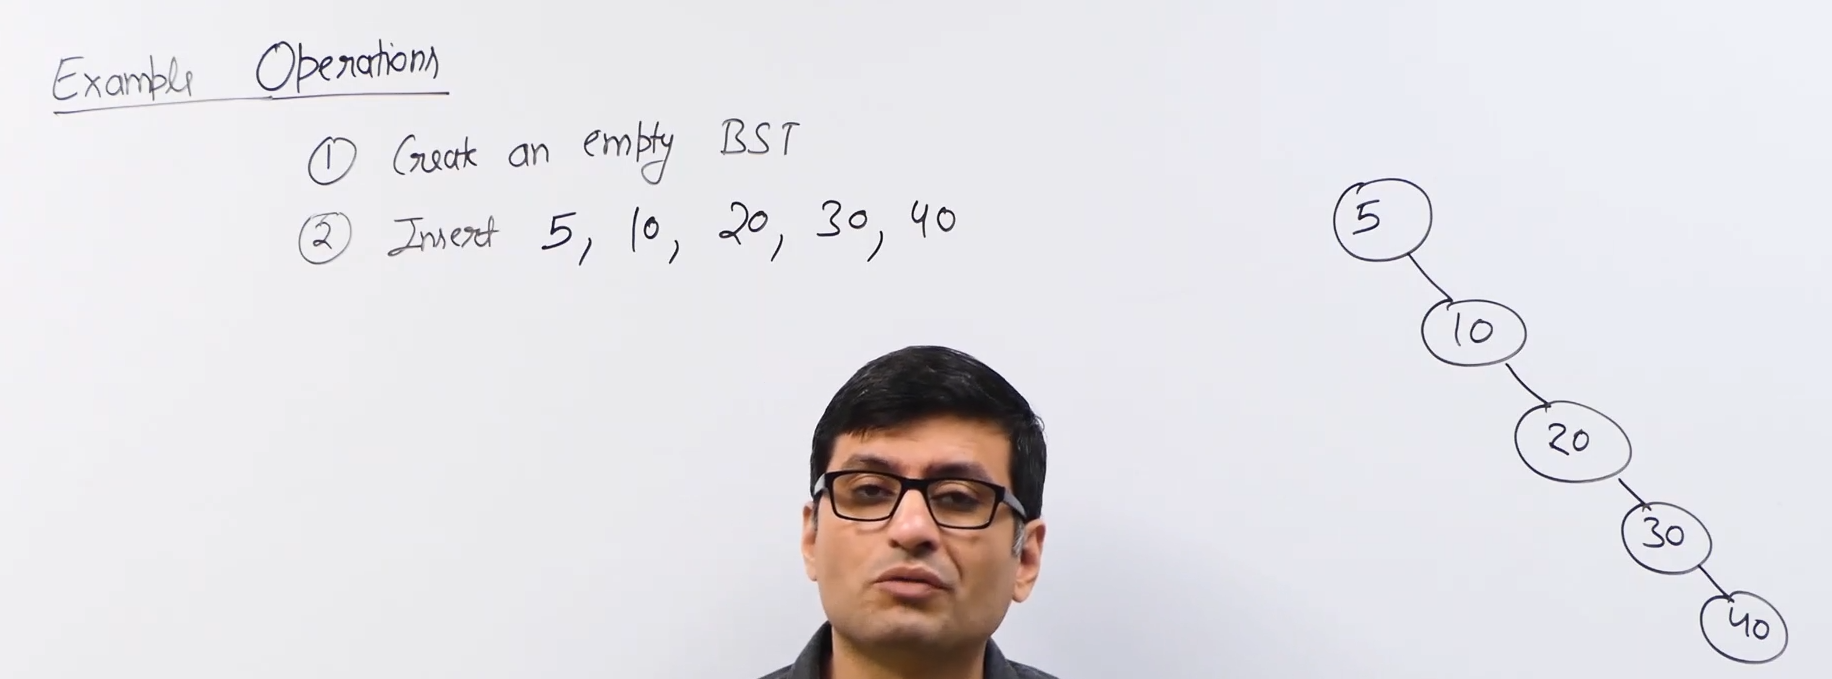 Example Operations
① Create an empty BST
② Insert 5, 10, 20, 30, 40
5
10
20
30
40